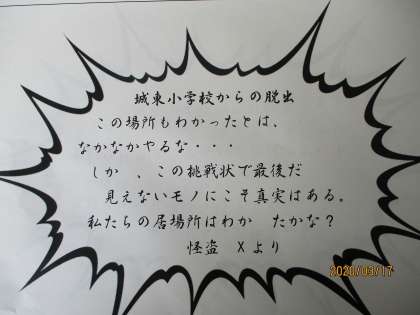 城東小学校からの脱出
この場所もわかったとは、
なかなかやるな・・・
しか　、この挑戦状で最後だ
見えないモノにこそ真実はある。
私たちの居場所はわか　たかな？
怪盗　Xより
2020/09/17